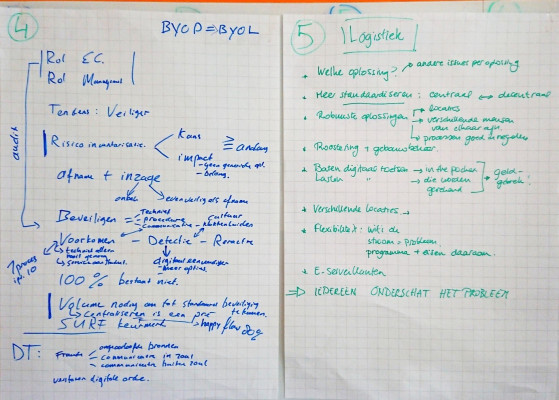 4
BYOD ⇒ BYOL
Rol EC.
Rol Management
audit
Tendens: Veiliger
Risico inventarisatie.
Kans
impact
aandacht
- Geen generieke opl.
- Belang.
afname + inzage
onbek
even veilig als afname
Beveiligen
- Techniek
- Procedure
- Communicatie
Cultuur
Voorkomen - Detectie - Remedie
technisch alleen
niet genoeg
digitaal eenvoudiger
- meer opties.
100% bestaat niet.
Volume nodig om tot standaard beveiliging
te komen.
Centraliseren is een pré
SURF keurmerk
happy flow
DT:
Fraude
ongeoorloofde bronnen
communicatie in zaal
communicatie buiten zaal
versturen digitale
5
Logistiek
Welke oplossing?
andere issues per oplossing
Meer standaardiseren: centraal ↔ decentraal
Robuuste oplossingen
locaties
verschillende mensen
van elkaar afh.
processen goed in regelen
Roostering + gebouwbeheer.
Baten digitaal toetsen → in the pocket
Lasten " → die worden
gerekend
geld-
gebrek!
Verschillende locaties
Flexibiliteit: wifi de
stroom = probleem.
programma + eisen daaraan.
E-surveillanten
⇒ IEDEREEN ONDERSCHAT HET PROBLEEM